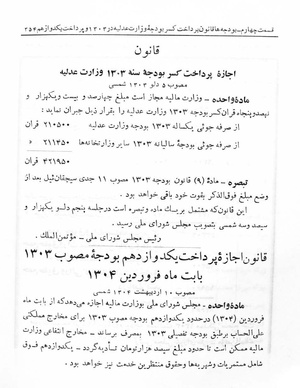 قسمت چهارم ـ بودجه‌ها قانون پرداخت کسر بودجهٔ وزارت عدلیه در ۱۳۰۳ و پرداخت یکدوازدهم ۳۵۴
قانون
اجازهٔ پرداخت کسر بودجهٔ سنه ۱۳۰۳ وزارت عدلیه
مصوب ۵ دلو ۱۳۰۳ شمسی
مادهٔ واحده ـ وزارت مالیه مجاز است مبلغ چهارصد و بیست ویکهزار و
نهصد و پنجاه قران کسر بودجه ۱۳۰۳ وزارت عدلیه را بقرار ذیل جبران نماید :
از صرفه جوئی یکساله ۱۳۰۳ بودجه وزارت عدلیه ۲۱۰۵۰۰ قران
از صرفه جوئی بودجهٔ سالیانه ۱۳۰۳ سایر وزارتخانه‌ها ۲۱۱۴۵۰ »
۴۲۱۹۵۰ قران
تبصره ـ مادهٔ (۹) قانون بودجه ۱۳۰۳ مصوب ۱۱ جدی سیچقان‌ئیل بعد از
وضع مبلغ فوق‌الذکر بقوت خود باقی خواهد بود .
این قانون که مشتمل بر یک ماده و تبصره است در جلسه پنجم دلو یکهزار و
سیصد وسه شمسی بتصویب مجلس شورای ملی رسید .
رئیس مجلس شورای ملی ـ مؤتمن‌الملك .
قانون اجازهٔ پرداخت یکدوازدهم بودجهٔ مصوب ۱۳۰۳
بابت ماه فروردین ۱۳۰۴
مصوب ۱۰ اردیبهشت ۱۳۰۴ شمسی
مادهٔ واحده ـ مجلس شورای ملی بوزارت مالیه اجازه می‌دهد که از بابت ماه
فروردین (۱۳۰۴) در حدود یکدوازدهم بودجه مصوب ۱۳۰۳ برای مخارج مملکتی
علی‌الحساب بر طبق بودجه تفصیلی ۱۳۰۳ بمصرف برساند ـ مخارج انتفاعی وزارت
مالیه ممکن است تا حدود مبلغ سیصد هزار تومان تأدیه گردد ـ یکدوازدهم فوق
شامل مستمریات و شهریه‌ها و حقوق منتظرین خدمت نیز خواهد بود .